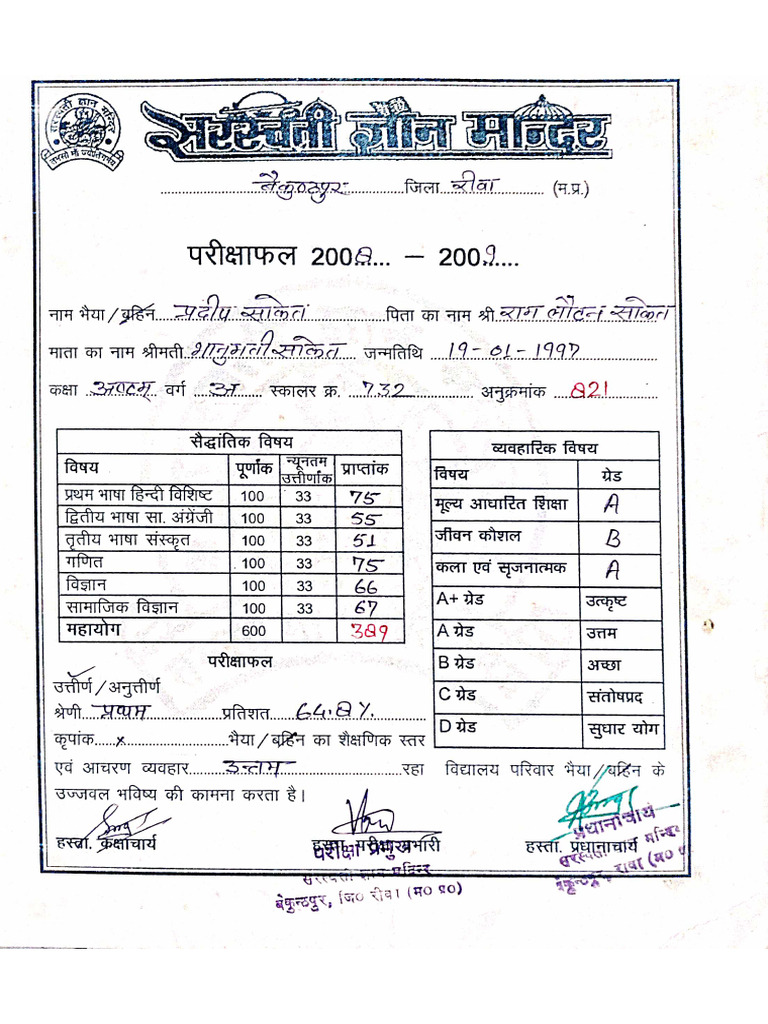 सरस्वती ज्ञान मन्दिर
सरस्वती ज्ञान मन्दिर
बैकुण्ठपुर जिला रीवा (म.प्र.)
परीक्षाफल 2008... – 2009....
नाम भैया/बहिन प्रदीप साकेत पिता का नाम श्री राम लौटन साकेत
माता का नाम श्रीमती भानुमती साकेत जन्मतिथि 19-01-1997
कक्षा अष्टम् वर्ग अ स्कालर क्र. 732 अनुक्रमांक 821
सैद्धांतिक विषय
विषय पूर्णांक न्यूनतम उत्तीर्णांक प्राप्तांक
प्रथम भाषा हिन्दी विशिष्ट 100 33 75
द्वितीय भाषा सा. अंग्रेंजी 100 33 55
तृतीय भाषा संस्कृत 100 33 51
गणित 100 33 75
विज्ञान 100 33 66
सामाजिक विज्ञान 100 33 67
महायोग 600 389
व्यवहारिक विषय
विषय ग्रेड
मूल्य आधारित शिक्षा A
जीवन कौशल B
कला एवं सृजनात्मक A
A+ ग्रेड उत्कृष्ट
A ग्रेड उत्तम
B ग्रेड अच्छा
C ग्रेड संतोषप्रद
D ग्रेड सुधार योग
परीक्षाफल
उत्तीर्ण/अनुत्तीर्ण
श्रेणी प्रथम प्रतिशत 64.8%
कृपांक x भैया/बहिन का शैक्षणिक स्तर
एवं आचरण व्यवहार उत्तम रहा विद्यालय परिवार भैया//बहिन के
उज्जवल भविष्य की कामना करता है।
हस्ता. कक्षाचार्य हस्ता. परीक्षा प्रभारी हस्ता. प्रधानाचार्य
परीक्षा प्रमुख
सरस्वती ज्ञान मन्दिर
बैकुन्ठपुर, जि0 रीवा (म0 प्र0)
प्रधानाचार्य
सरस्वती ज्ञान मन्दिर
बैकुन्ठपुर, रीवा (म0 प्र